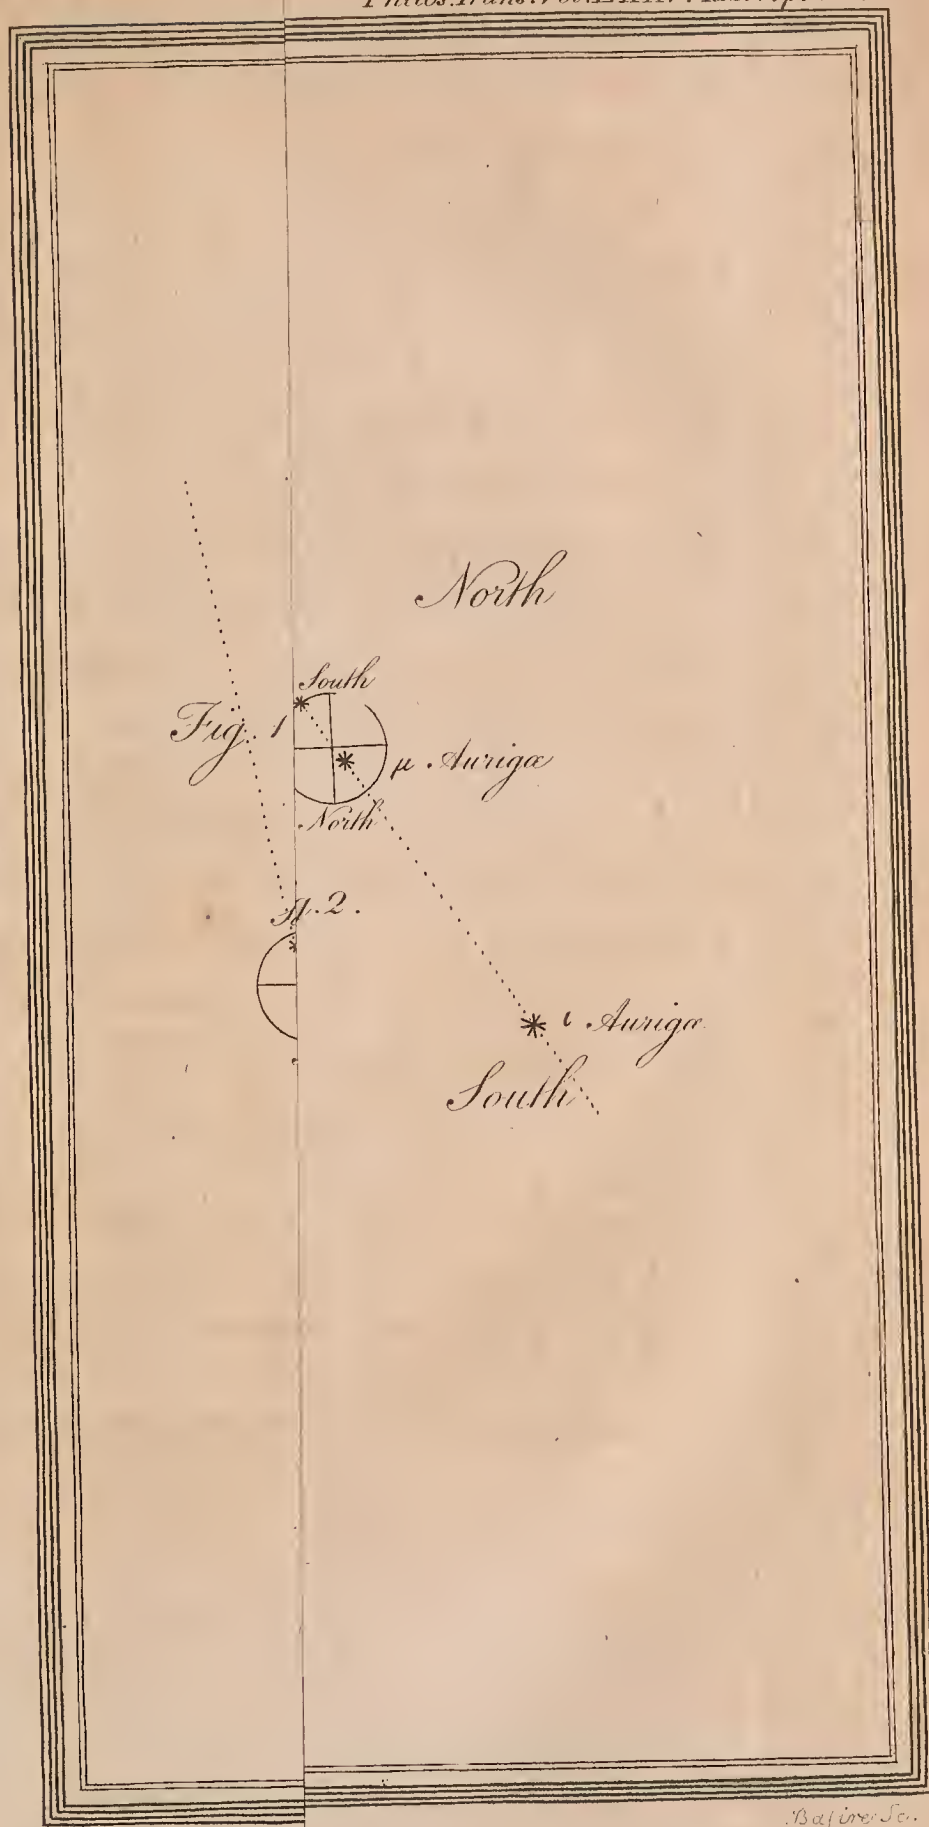 Philos. Trans. Vol.
North
South
Fig. 1
μ Aurigæ
North
2.
ι Aurigæ
South
Basire Sc.